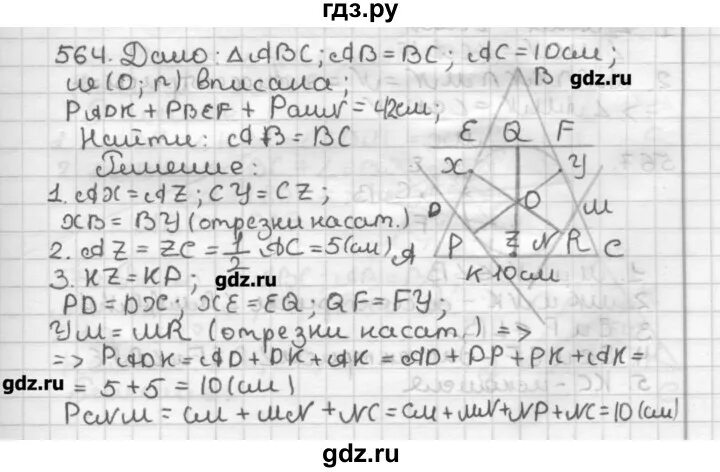 гдз.ру
564. Дано: △ABC; AB = BC; AC = 10 см;
ω(O; r) вписана;
P ADK + P BEF + P CMN = 42 см;
gdz.ru
Найти: AB = BC
Решение:
1. AX = AZ; CY = CZ;
XB = BY (отрезки касат.)
2. AZ = ZC = 1/2 AC = 5 (см)
3. KZ = KP;
gdz.ru
PD = DX; XE = EQ; QF = FY;
YM = MR (отрезки касат.) =>
=> P ADK = AD + DK + AK = AD + DP + PK + AK =
gdz.ru
= 5 + 5 = 10 (см)
P CNM = CM + MN + NC = CM + MN + NP + NC = 10 (см)
B
E Q F
X Y
O
D M
A P Z N R C
K 10 см
gdz.ru